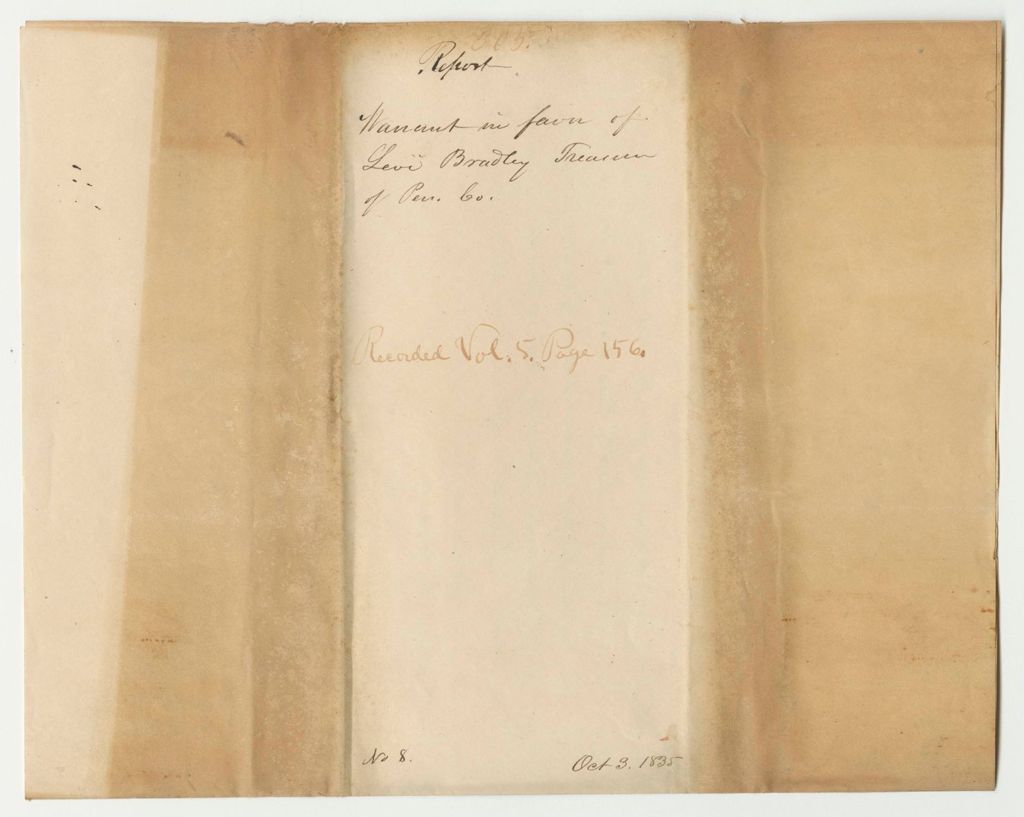 305.
Report
Warrant in favor of
Levi Bradley Treasurer
of Pen. Co.
Recorded Vol. 5. Page 156.
No 8.
Oct 3. 1835